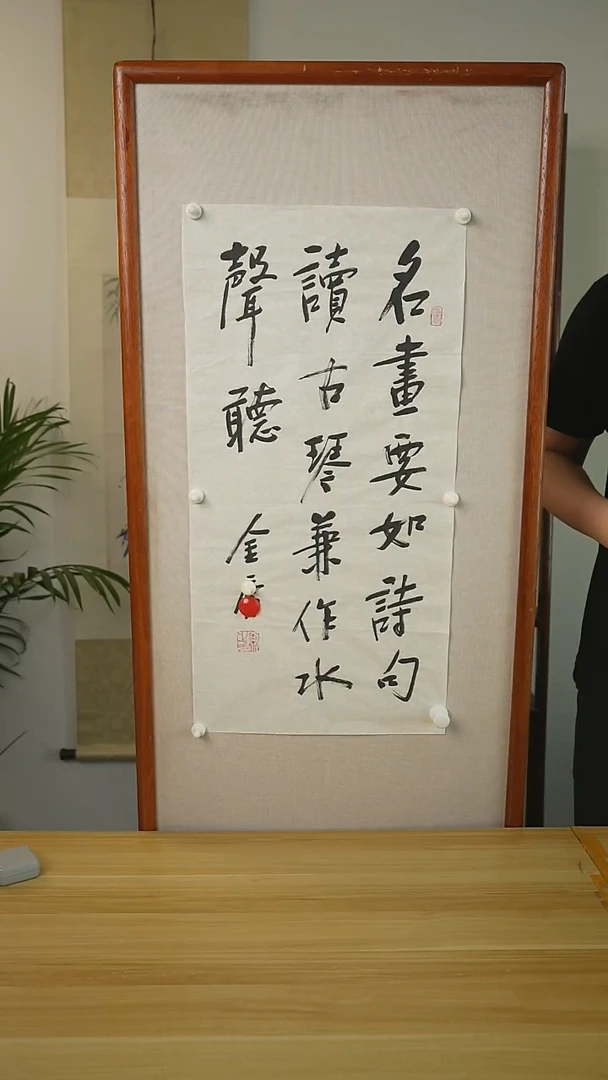 名畫要如詩句
讀古琴兼作水
聲聽
金